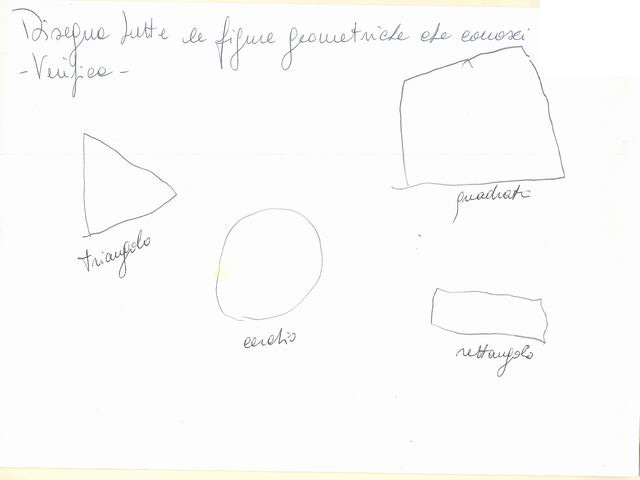 Disegna tutte le figure geometriche che conosci
- Verifica -
quadrato
triangolo
cerchio
rettangolo